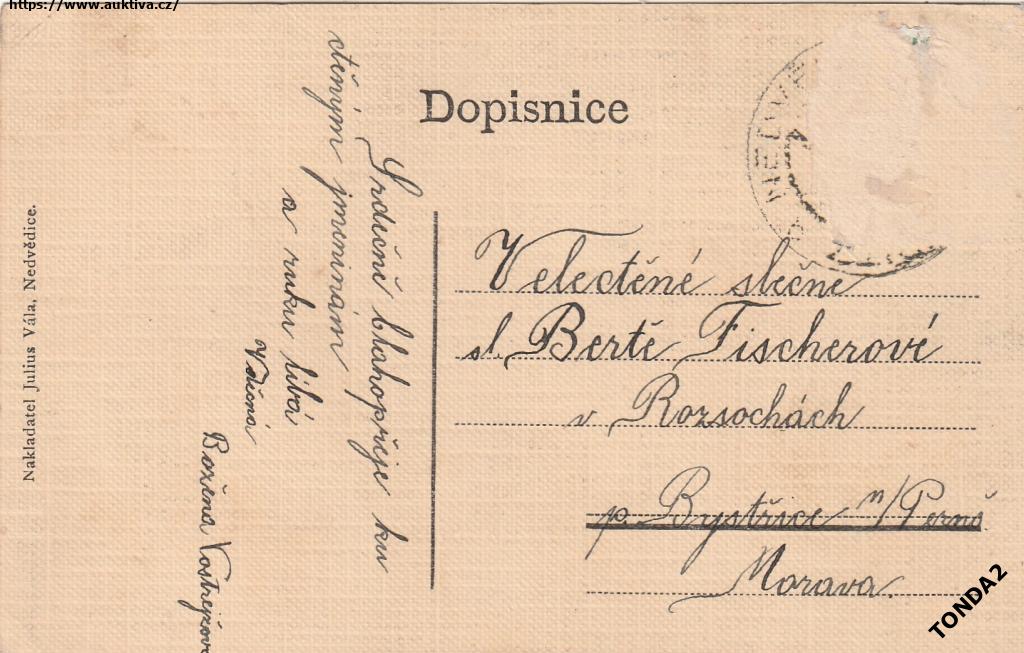 https://www.auktiva.cz/
Dopisnice
NEDVĚ
Srdečně blahopřeje ku
ctěným jmeninám
a ruku líbá
Vděčná
Božena
Velectěné slečně
sl. Bertě Fischerové
v Rozsochách
p. Bystřice n/Pernš.
Morava.
Nakladatel Julius Vála, Nedvědice.
TONDA2